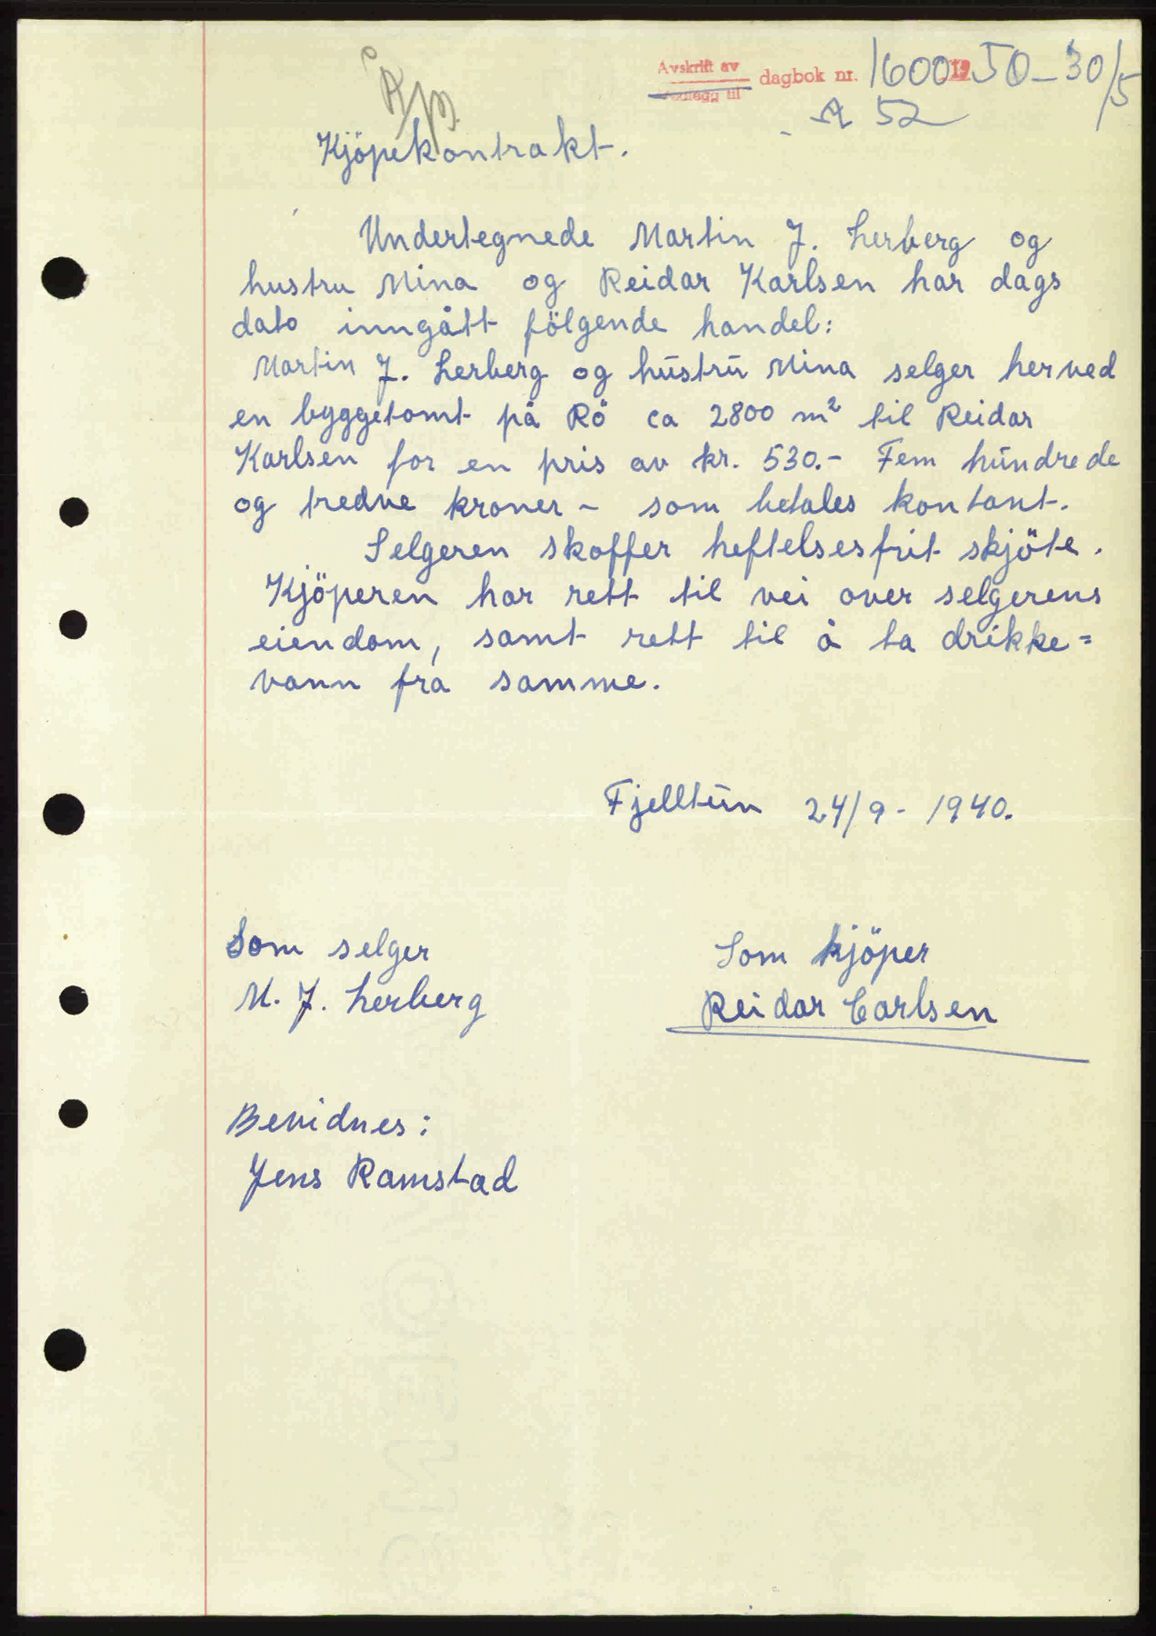 Avskrift av
Vedlegg til dagbok nr. 1600 1950 - 30/5
- A 52
Kjöpekontrakt.
Undertegnede Martin J. Lerberg og
hustru Mina og Reidar Karlsen har dags
dato inngått fölgende handel:
Martin J. Lerberg og hustru Mina selger herved
en byggetomt på Rö ca 2800 m² til Reidar
Karlsen for en pris av kr. 530.- Fem hundrede
og tredve kroner - som betales kontant.
Selgeren skaffer heftelsesfrit skjöte.
Kjöperen har rett til vei over selgerens
eiendom, samt rett til å ta drikke=
vann fra samme.
Fjelltun 24/9 - 1940.
Som selger
M. J. Lerberg
Som kjöper
Reidar Carlsen
Bevidnes:
Jens Ramstad